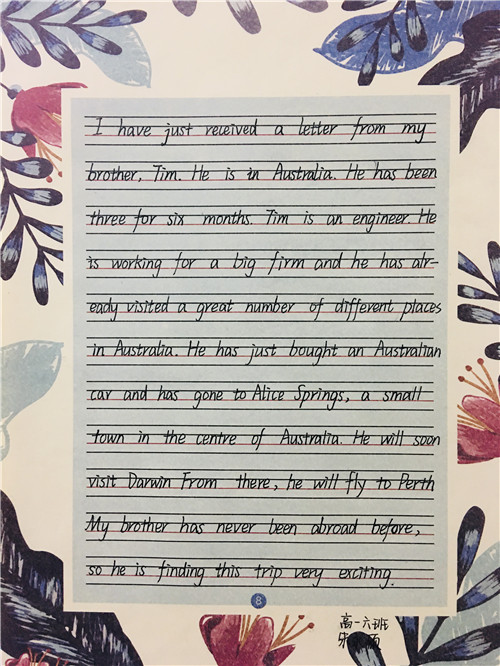 I have just received a letter from my
brother, Tim. He is in Australia. He has been
three for six months. Tim is an engineer. He
is working for a big firm and he has alr-
eady visited a great number of different places
in Australia. He has just bought an Australian
car and has gone to Alice Springs, a small
town in the centre of Australia. He will soon
visit Darwin From there, he will fly to Perth
My brother has never been abroad before,
so he is finding this trip very exciting.
8
高一六班